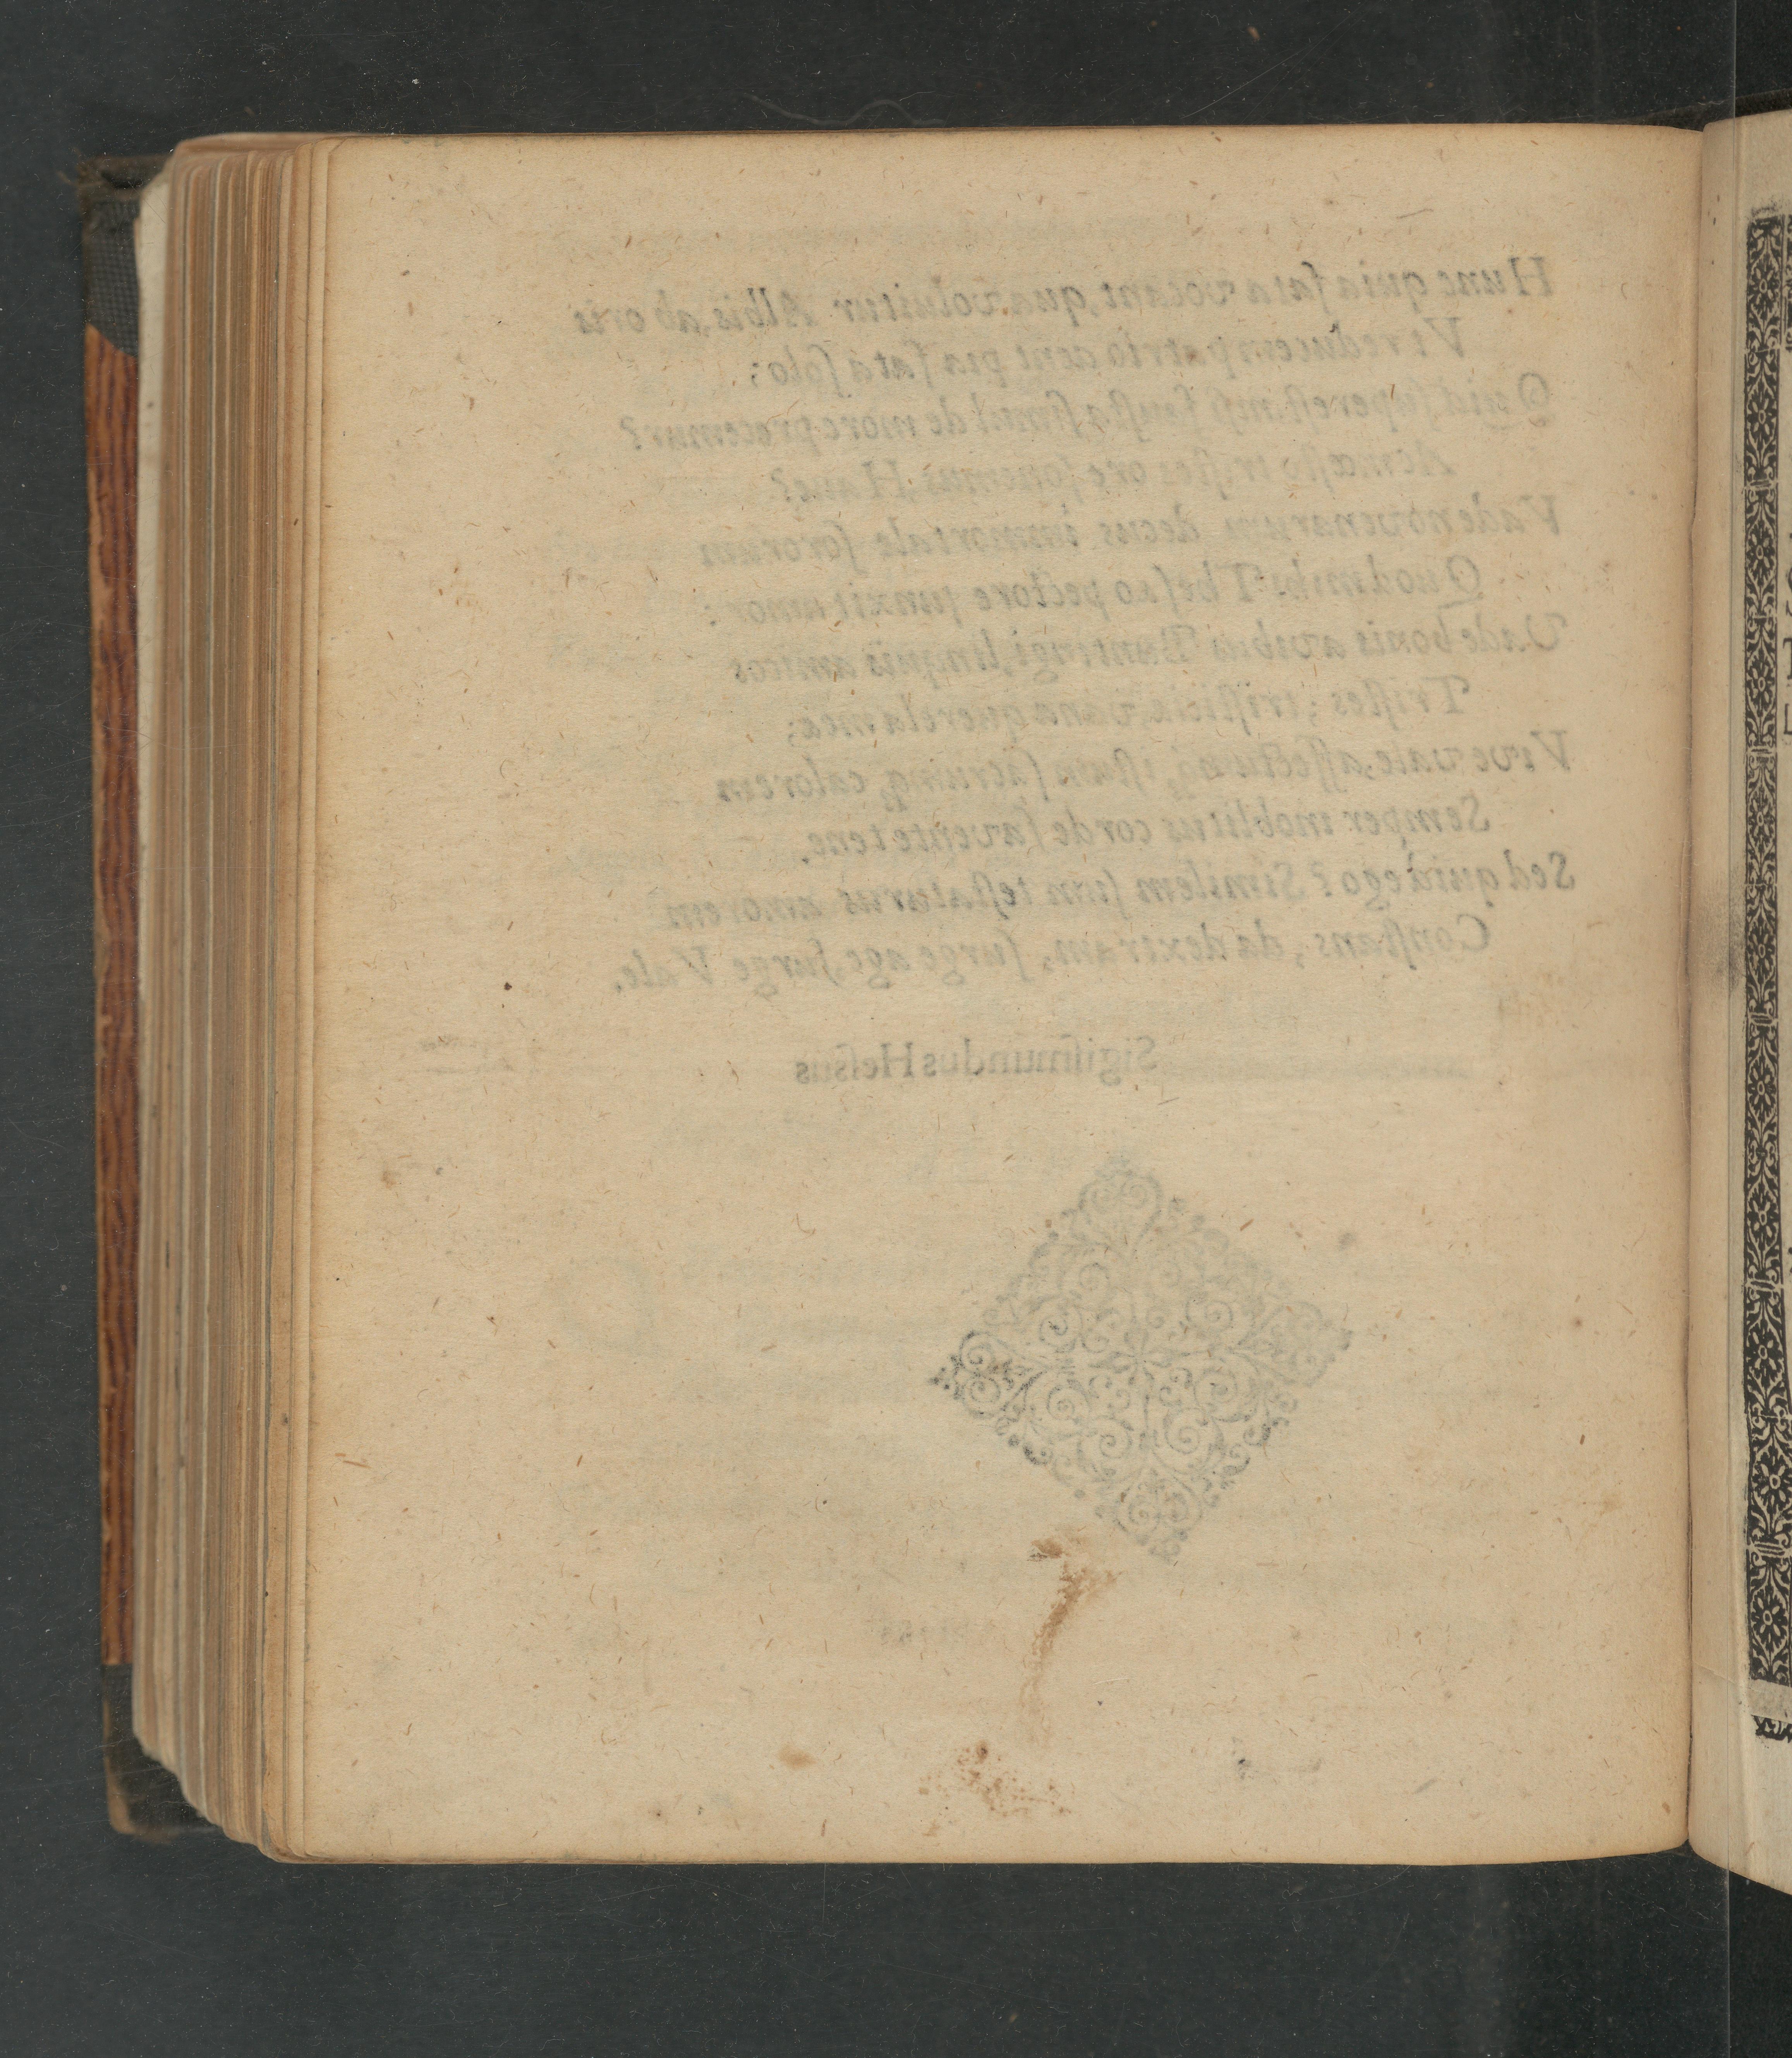 Hunc quia fata vocant, qua voluitur Albis, ab oris
Vt reducem patrio dent pia fata solo;
Quid superest nisi fausta simul de more precemur?
Ac mœsto tristes ore sonemus, Haue?
Vade novenarum decus immortale sororum
Quod mihi Theseo pectore junxit amor:
Vade bonis avibus Buntingi, linquis amicos
Tristes; tristicia vana querela mea;
Vive vale, affectumq; istum sacrumq; calorem
Semper inoblitus corde favente tene.
Sed quid ego? Similem sum testaturus amorem
Constans, da dextram, surge age surge Vale.
Sigismundus Hessus